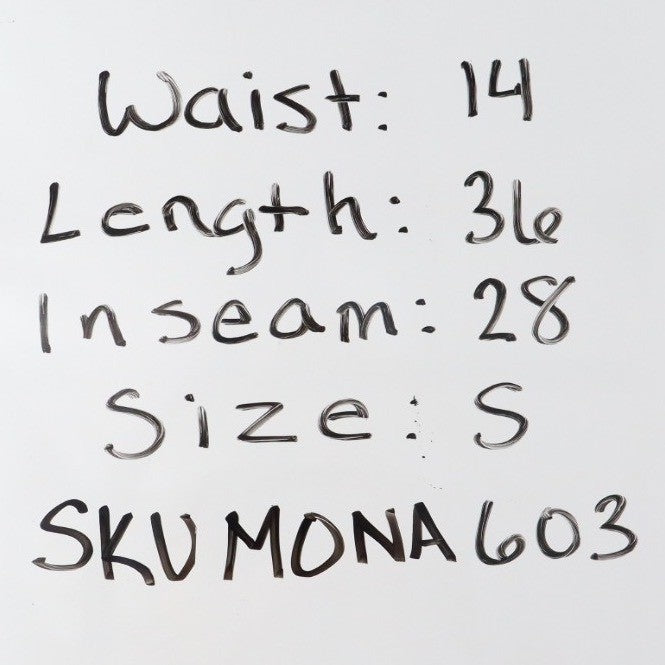 Waist: 14
Length: 36
Inseam: 28
Size: S
SKU MONA603